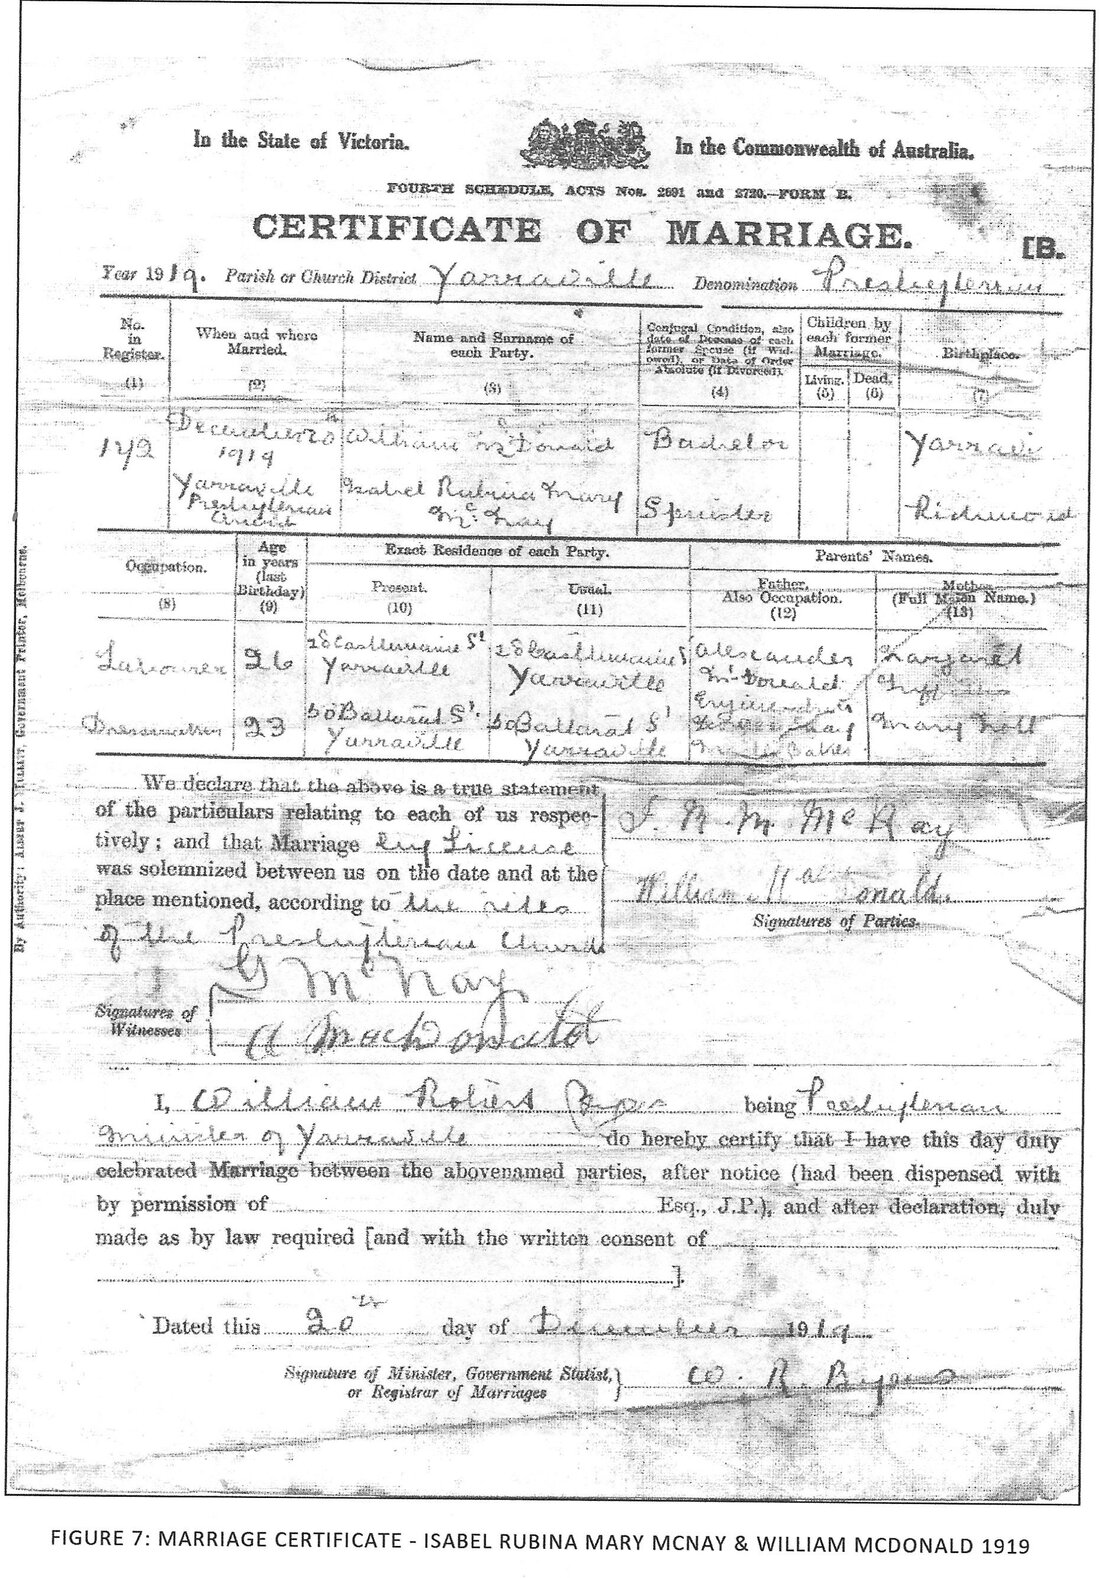 In the State of Victoria. In the Commonwealth of Australia.
FOURTH SCHEDULE, ACTS Nos. 2691 and 2720.—FORM B.
CERTIFICATE OF MARRIAGE. [B.
Year 1919. Parish or Church District Yarraville Denomination Presbyterian
No. in Register. (1)
When and where Married. (2)
Name and Surname of each Party. (3)
Conjugal Condition, also date of Decease of each former Spouse (if Widowed), or Date of Order Absolute (if Divorced). (4)
Children by each former Marriage.
Living. (5) Dead. (6)
Birthplace. (7)
142
December 20th 1919
Yarraville Presbyterian Church
William McDonald Bachelor
Isabel Rubina Mary McNay Spinster Richmond
Occupation. (8)
Age in years (last Birthday) (9)
Exact Residence of each Party.
Present. (10) Usual. (11)
Parents' Names.
Father, Also Occupation. (12)
Mother (Full Maiden Name.) (13)
Labourer 26 28 Castlemaine St Yarraville 28 Castlemaine St Yarraville Alexander McDonald Margaret
Dressmaker 23 50 Ballarat St Yarraville 50 Ballarat St Yarraville Mary Nott
We declare that the above is a true statement
of the particulars relating to each of us respec-
tively; and that Marriage by License
was solemnized between us on the date and at the
place mentioned, according to the rites
of the Presbyterian Church
I. R. M. McNay
William MacDonald
Signatures of Parties.
Signatures of Witnesses
G McNay
A MacDonald
I, William Robert being Presbyterian
Minister of Yarraville do hereby certify that I have this day duly
celebrated Marriage between the abovenamed parties, after notice (had been dispensed with
by permission of Esq., J.P.), and after declaration, duly
made as by law required [and with the written consent of
].
Dated this 20th day of December 1919
Signature of Minister, Government Statist,
or Registrar of Marriages
W. R.
By Authority: Albert J. Mullett, Government Printer, Melbourne.
FIGURE 7: MARRIAGE CERTIFICATE - ISABEL RUBINA MARY MCNAY & WILLIAM MCDONALD 1919